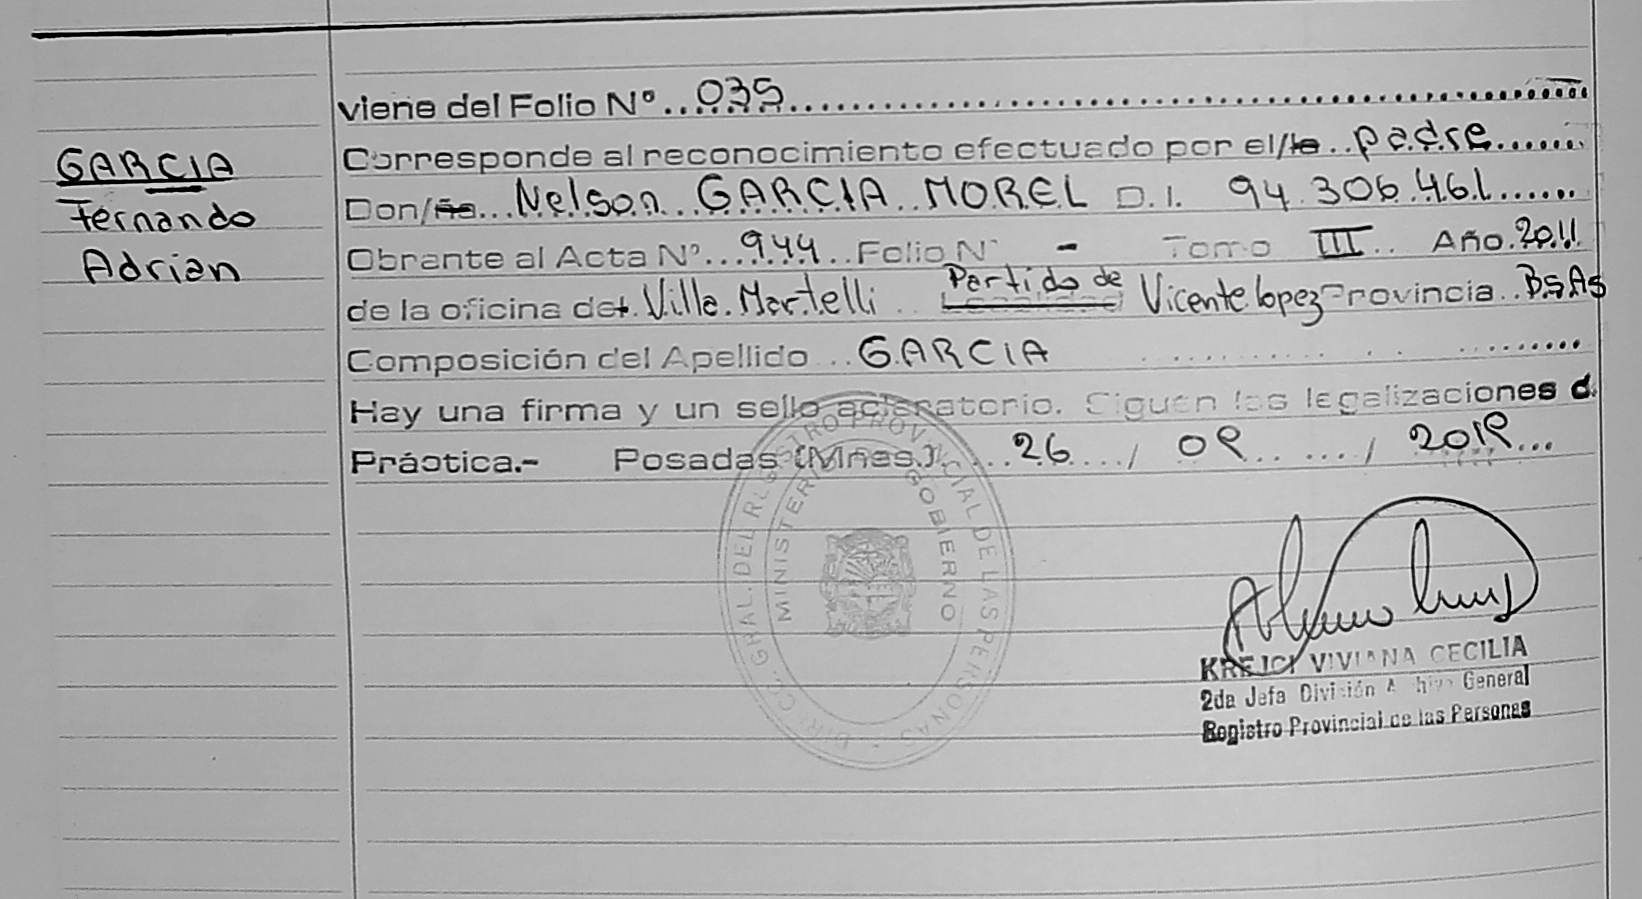 GARCIA
Fernando
Adrian
viene del Folio Nº...035...
Corresponde al reconocimiento efectuado por el/la padre
Don/ña Nelson GARCIA MOREL D.I. 94.306.461
Obrante al Acta Nº 944 Folio Nº - Tomo III Año 2011
de la oficina de Villa Martelli Partido de Vicente lopez Provincia Bs As
Composición del Apellido GARCIA
Hay una firma y un sello aclaratorio. Siguen las legalizaciones d.
Práctica.- Posadas (Mnes.) 26 / 09 / 2019
DIRECC. GRAL. DEL REGISTRO PROVINCIAL DE LAS PERSONAS
MINISTERIO GOBIERNO
KREJCI VIVIANA CECILIA
2da Jefa División Archivo General
Registro Provincial de las Personas